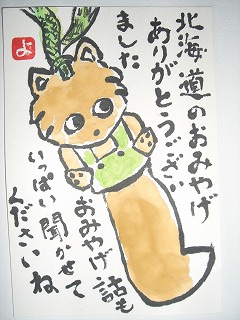 北海道のおみやげ
ありがとうござい
ました
おみやげ話も
いっぱい聞かせて
くださいね
よ